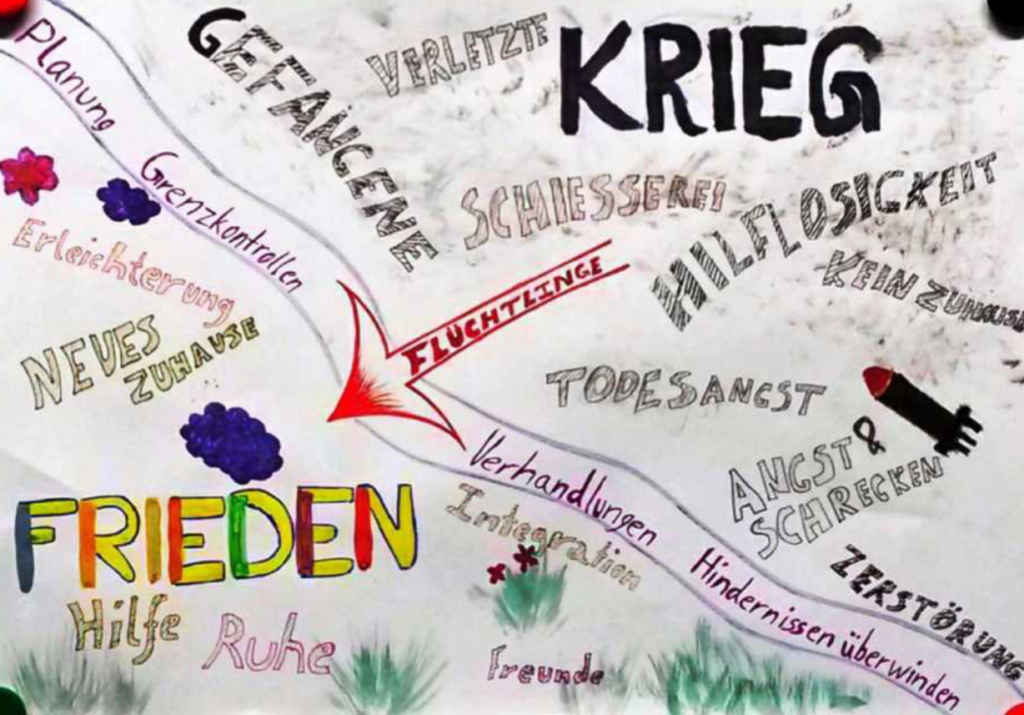 Planung
Grenzkontrollen
GEFANGENE
VERLETZTE
KRIEG
SCHIESSEREI
HILFLOSICKEIT
KEIN ZUHAUSE
Erleichterung
NEUES
ZUHAUSE
FLÜCHTLINGE
TODESANGST
ANGST &
SCHRECKEN
Verhandlungen
Hindernissen überwinden
ZERSTÖRUNG
FRIEDEN
Integration
Hilfe
Ruhe
Freunde